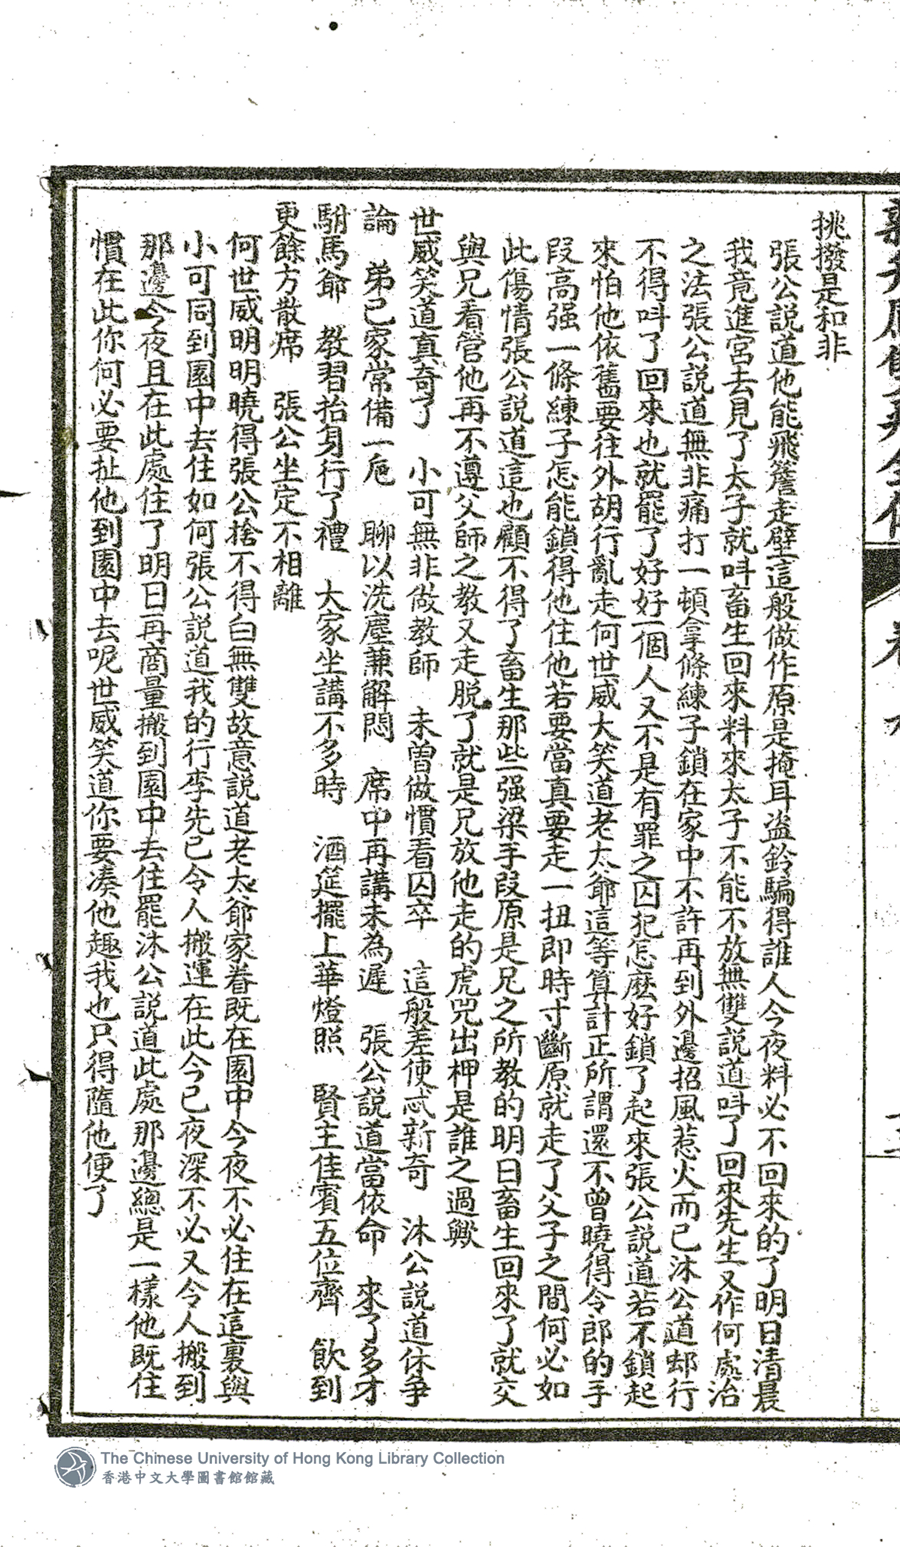 挑撥是和非
張公説道他能飛簷走壁這般做作原是掩耳盗鈴騙得誰人今夜料必不回來的了明日清晨
我竟進宮去見了太子就呌畜生回來料來太子不能不放無雙説道呌了回來先生又作何處治
之法張公説道無非痛打一頓拿條練子鎖在家中不許再到外邊招風惹火而已沐公道却行
不得呌了回來也就罷了好好一個人又不是有罪之囚犯怎麽好鎖了起來張公説道若不鎖起
來怕他依舊要往外胡行亂走何世威大笑道老太爺這等算計正所謂還不曾曉得令郎的手
段高强一條練子怎能鎖得他住他若要當真要走一扭即時寸斷原就走了父子之間何必如
此傷情張公説道這也顧不得了畜生那些强梁手段原是兄之所教的明日畜生回來了就交
與兄看管他再不遵父師之教又走脱了就是兄放他走的虎兕出柙是誰之過歟
世威笑道真奇了　小可無非做教師　未曽做慣看囚卒　這般差使忒新奇　沐公説道休争
論　弟已家常備一卮　聊以洗塵兼解悶　席中再講未為遲　張公説道當依命　來了多才
駙馬爺　教習抬身行了禮　大家坐講不多時　酒筵擺上華燈照　賢主佳賓五位齊　飲到
更餘方散席　張公坐定不相離
何世威明明曉得張公捨不得白無雙故意説道老太爺家眷既在園中今夜不必住在這裏與
小可同到園中去住如何張公説道我的行李先已令人搬運在此今已夜深不必又令人搬到
那邊今夜且在此處住了明日再商量搬到園中去住罷沐公説道此處那邊總是一樣他既住
慣在此你何必要扯他到園中去呢世威笑道你要凑他趣我也只得隨他便了
The Chinese University of Hong Kong Library Collection
香港中文大學圖書館館藏